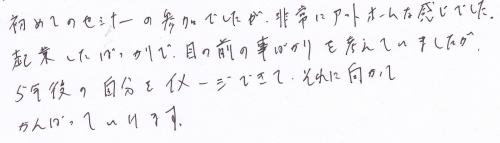 初めてのセミナーの参加でしたが、非常にアットホームな感じでした。
起業したばっかりで、目の前の事ばかりを考えていましたが、
5年後の自分をイメージできて、それに向かって
がんばっていけます。